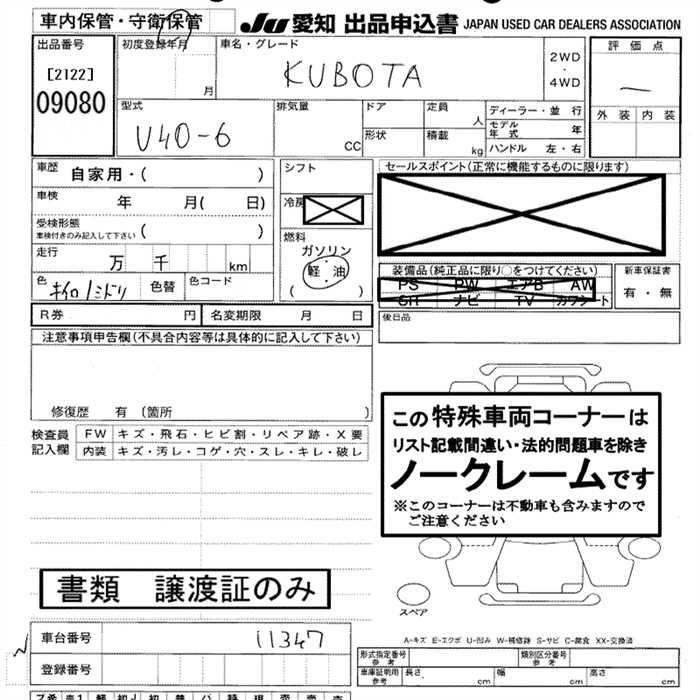 車内保管・守衛保管
JU 愛知 出品申込書 JAPAN USED CAR DEALERS ASSOCIATION
出品番号
[2122]
09080
初度登録年月
月
車名・グレード
KUBOTA
2WD
・
4WD
評価点
—
外装 内装
型式
U40-6
排気量
CC
ドア
形状
定員
人
積載
kg
ディーラー・並行
モデル年式 年
ハンドル 左・右
車歴
自家用・( )
車検
年 月( 日)
受検形態
車検付きのみ記入して下さい ( )
走行
万 千 km
色
キイロ/ミドリ
色替
色コード
シフト
冷房
燃料
ガソリン
・
軽・油
( )
セールスポイント(正常に機能するものに限ります)
装備品(純正品に限り○をつけてください)
PS PW エアB AW
SR ナビ TV カワシート
新車保証書
有・無
R券 円
名変期限 月 日
後日品
注意事項申告欄(不具合内容等は具体的に記入して下さい)
修復歴 有 (箇所 )
検査員
記入欄
FW キズ・飛石・ヒビ割・リペア跡・X要
内装 キズ・汚レ・コゲ・穴・スレ・キレ・破レ
この特殊車両コーナーは
リスト記載間違い・法的問題車を除き
ノークレームです
※このコーナーは不動車も含みますので
ご注意ください
書類 譲渡証のみ
スペア
A-キズ E-エクボ U-凹み W-補修跡 S-サビ C-腐食 XX-交換済
車台番号
11347
登録番号
形式指定番号
参考
類別区分番号
参考
車庫証明用
参考
長さ cm
幅 cm
高さ cm